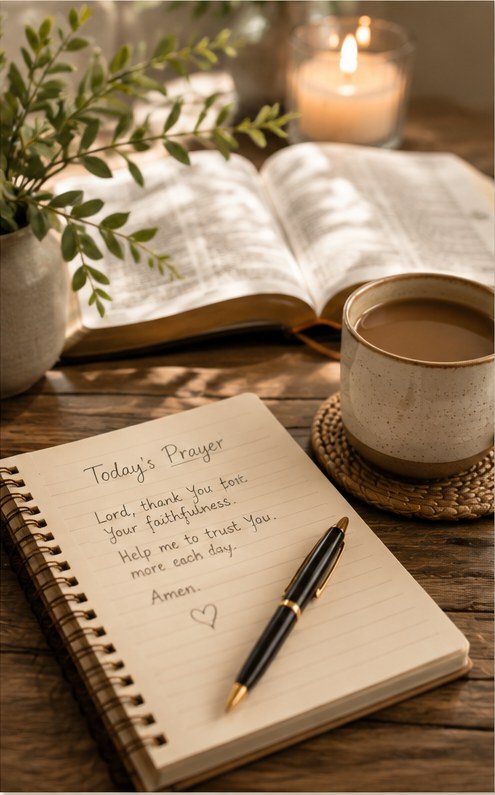 Today's Prayer
Lord, thank You for
Your faithfulness.
Help me to trust You.
more each day.
Amen.